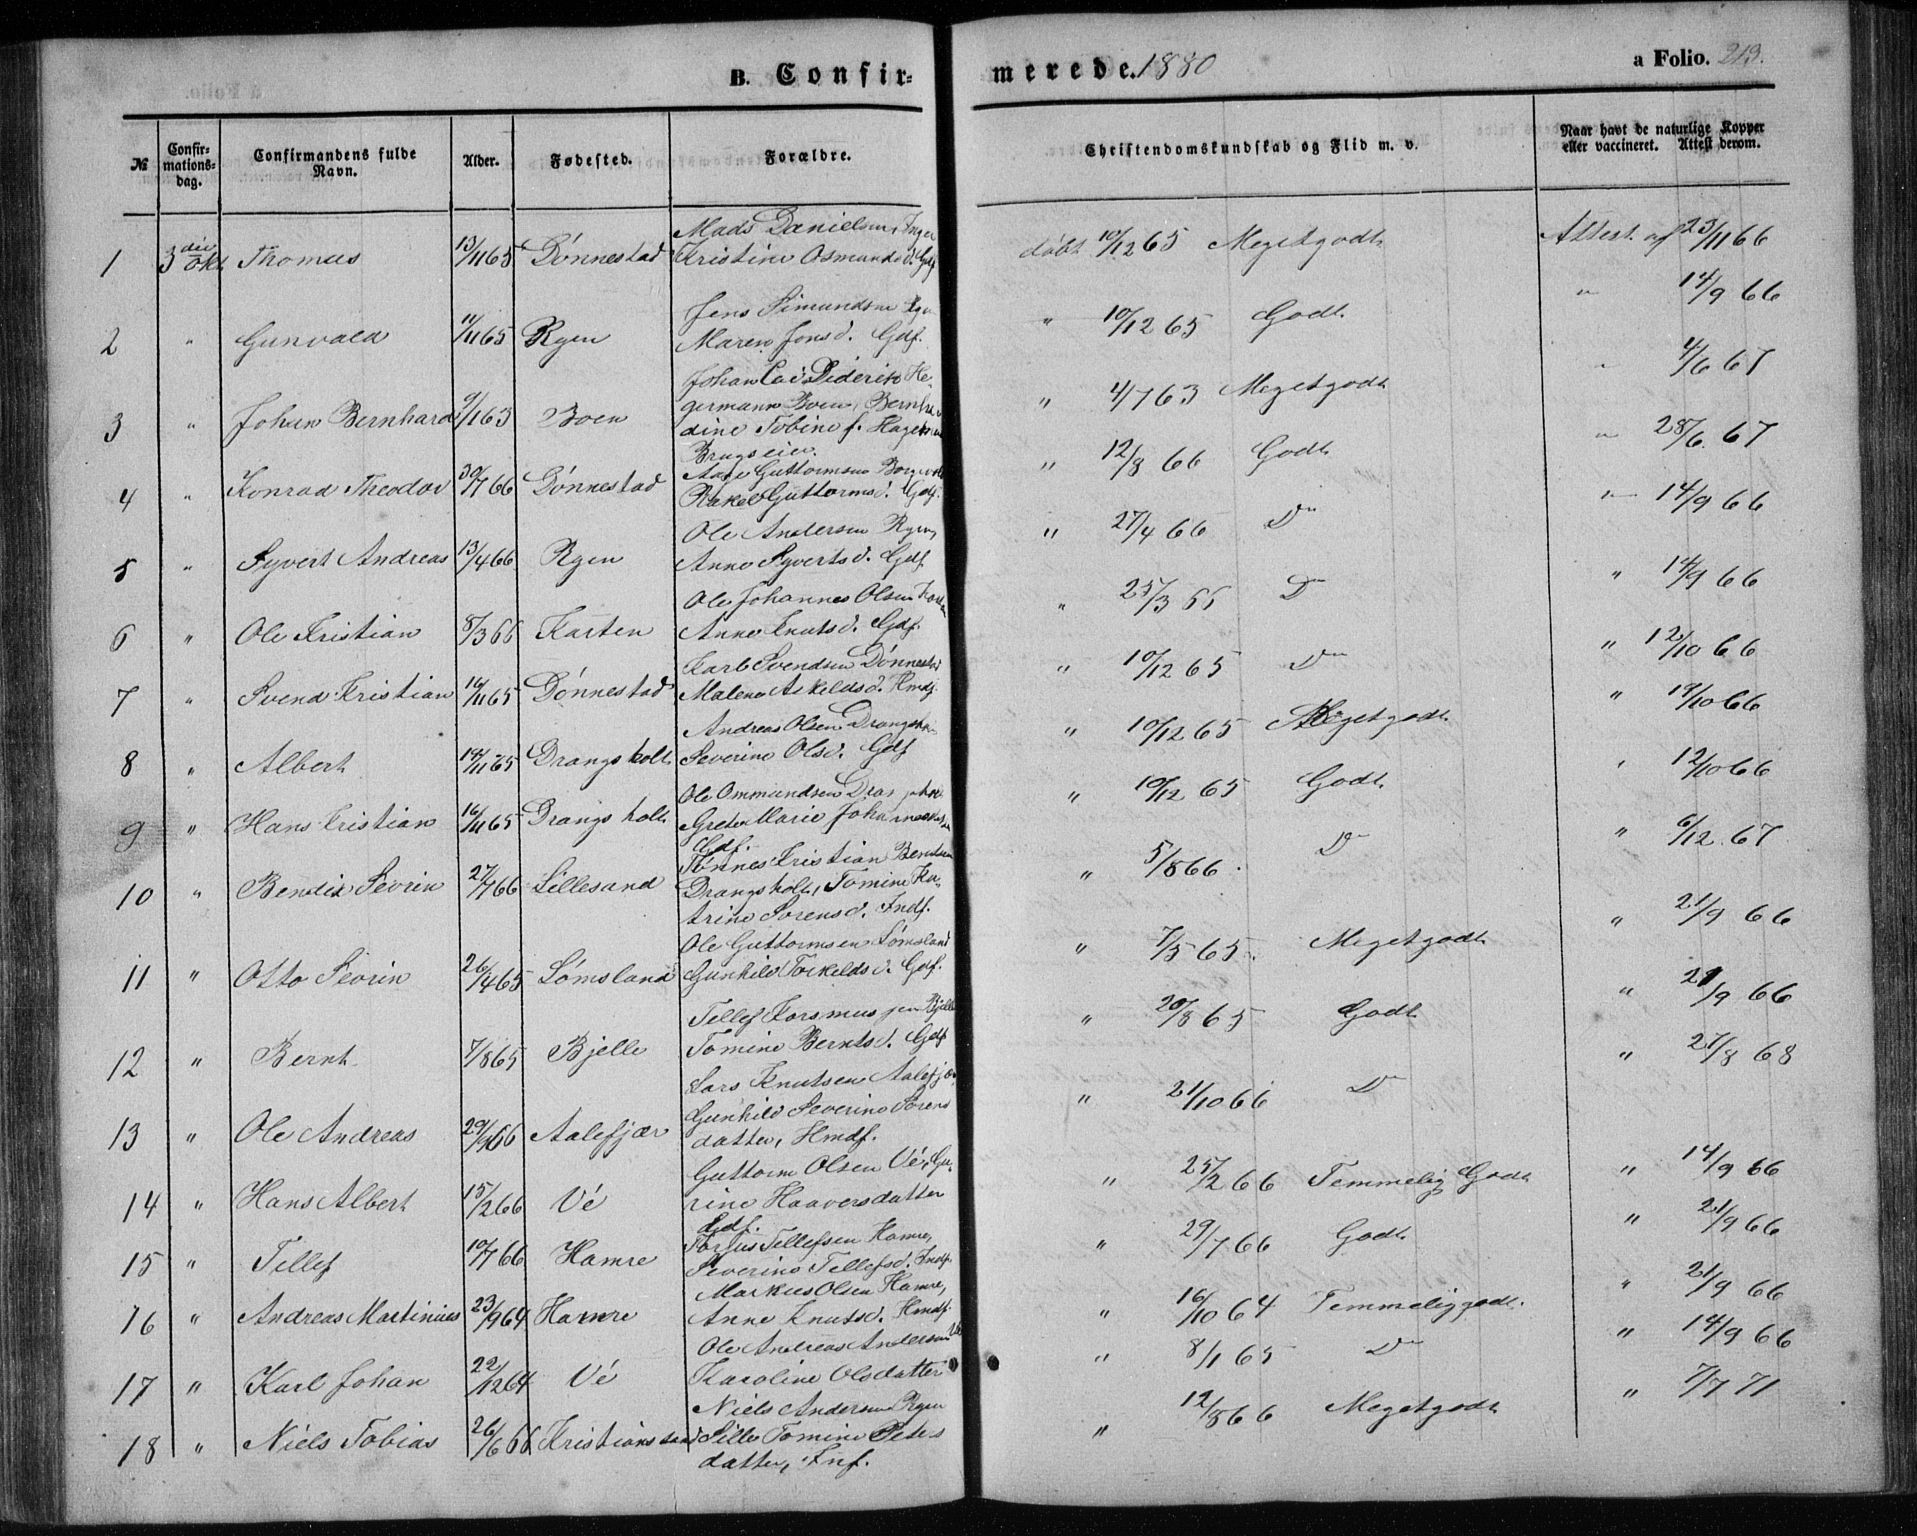 B. Confir-merede. 1880 a Folio. 213.
№ Confir-mations-dag. Confirmandens fulde Navn. Alder. Fødested. Forældre. Christendomskundskab og Flid m. v. Naar havt de naturlige Kopper eller vaccineret. Attest derom.
Mads Danielsen, Inger
1 3die Okt Thomas 13/11 65 Dønnestad Kristine Osmundsd. Gdf døbt 10/12 65 Megetgodt Attest af 23/11 66
Jens Simundsen Ryen
2 " Gunvald 11/11 65 Ryen Maren Jonsd. Gdf. " 10/12 65 Godt " 14/9 66
Johan Cai Diderik He-
3 " Johan Bernhard 9/1 63 Boen germann Boen, Bernhar " 4/7 63 Megetgodt " 4/6 67
dine Tobine f.
Brugseier.
Aane Guttormsen
4 " Konrad Theodor 30/7 66 Dønnestad Rakel Guttormsd. Gdf. " 12/8 66 Godt " 28/6. 67
Ole Andersen Ryen,
5 " Syvert Andreas 13/4 66 Ryen Anne Syvertsd. Gdf. " 27/4 66 Do " 14/9 66
Ole Johannes Olsen
6 " Ole Kristian 8/3 66 Kasten Anne Knutsd. Gdf. " 25/3 66 Do " 14/9 66
Karl Svendsen Dønnestad
7 " Svend Kristian 16/11 65 Dønnestad Malene Askeldsd. Hmdf. " 10/12 65 Do " 12/10 66
Andreas Olsen Drangsho
8 " Albert 14/11 65 Drangsholt Severine Olsd. Gdf " 10/12 65 Megetgodt " 19/10 66
Ole Ommundsen
9 " Hans Kristian 16/11 65 Drangsholt Grete Marie " 10/12 65 Godt " 12/10 66
Gdf.
Tønnes Kristian Bendsen
10 " Bendix Sevrin 27/7 66 Lillesand Drangsholt, Tomine Ka- " 5/8 66. Do " 6/12. 67
trine Sørensd. Indf.
Ole Guttormsen Lømsland
11 " Otto Sevrin 26/4 65 Lømsland Gunhild Torkeldsd. Gdf. " 7/5 65. Megetgodt " 21/9 66
Tellef Bjelle
12 " Bernt 7/8 65 Bjelle Tomine Berntsd. Gdf " 20/8 65 Godt " 21/9 66
Lars Knutsen Aalefjær
13 " Ole Andreas 29/9 66 Aalefjær Gunhild Severine Sørens " 21/10 66 Do " 21/8 68
datter, Hmdf.
Guttorm Olsen Vé, Gu-
14 " Hans Albert 15/2 66 Vé rine Haaversdatter " 25/2 66 Temmelig Godt " 14/9 66
Gdf.
Torjus Tellefsen Hamre,
15 " Tellef 10/7 66 Hamre Severine Tellefsd. Indf. " 29/7 66 Godt " 21/9 66
Markus Olsen Hamre,
16 " Andreas Martinius 23/9 64 Hamre Anne Knutsd. Hmdf. " 16/10 64 Temmeliggodt. " 21/9 66
Ole Andreas Andersen Vé
17 " Karl Johan 22/12 64 Vé Karoline Olsdatter " 8/1 65 Do " 14/9 66
Niels Andersen Ryen
18 " Niels Tobias 26/6 66 Kristianssand Sille Tomine Peters " 12/8 66 Megetgodt " 7/7 71
datter, Inf.